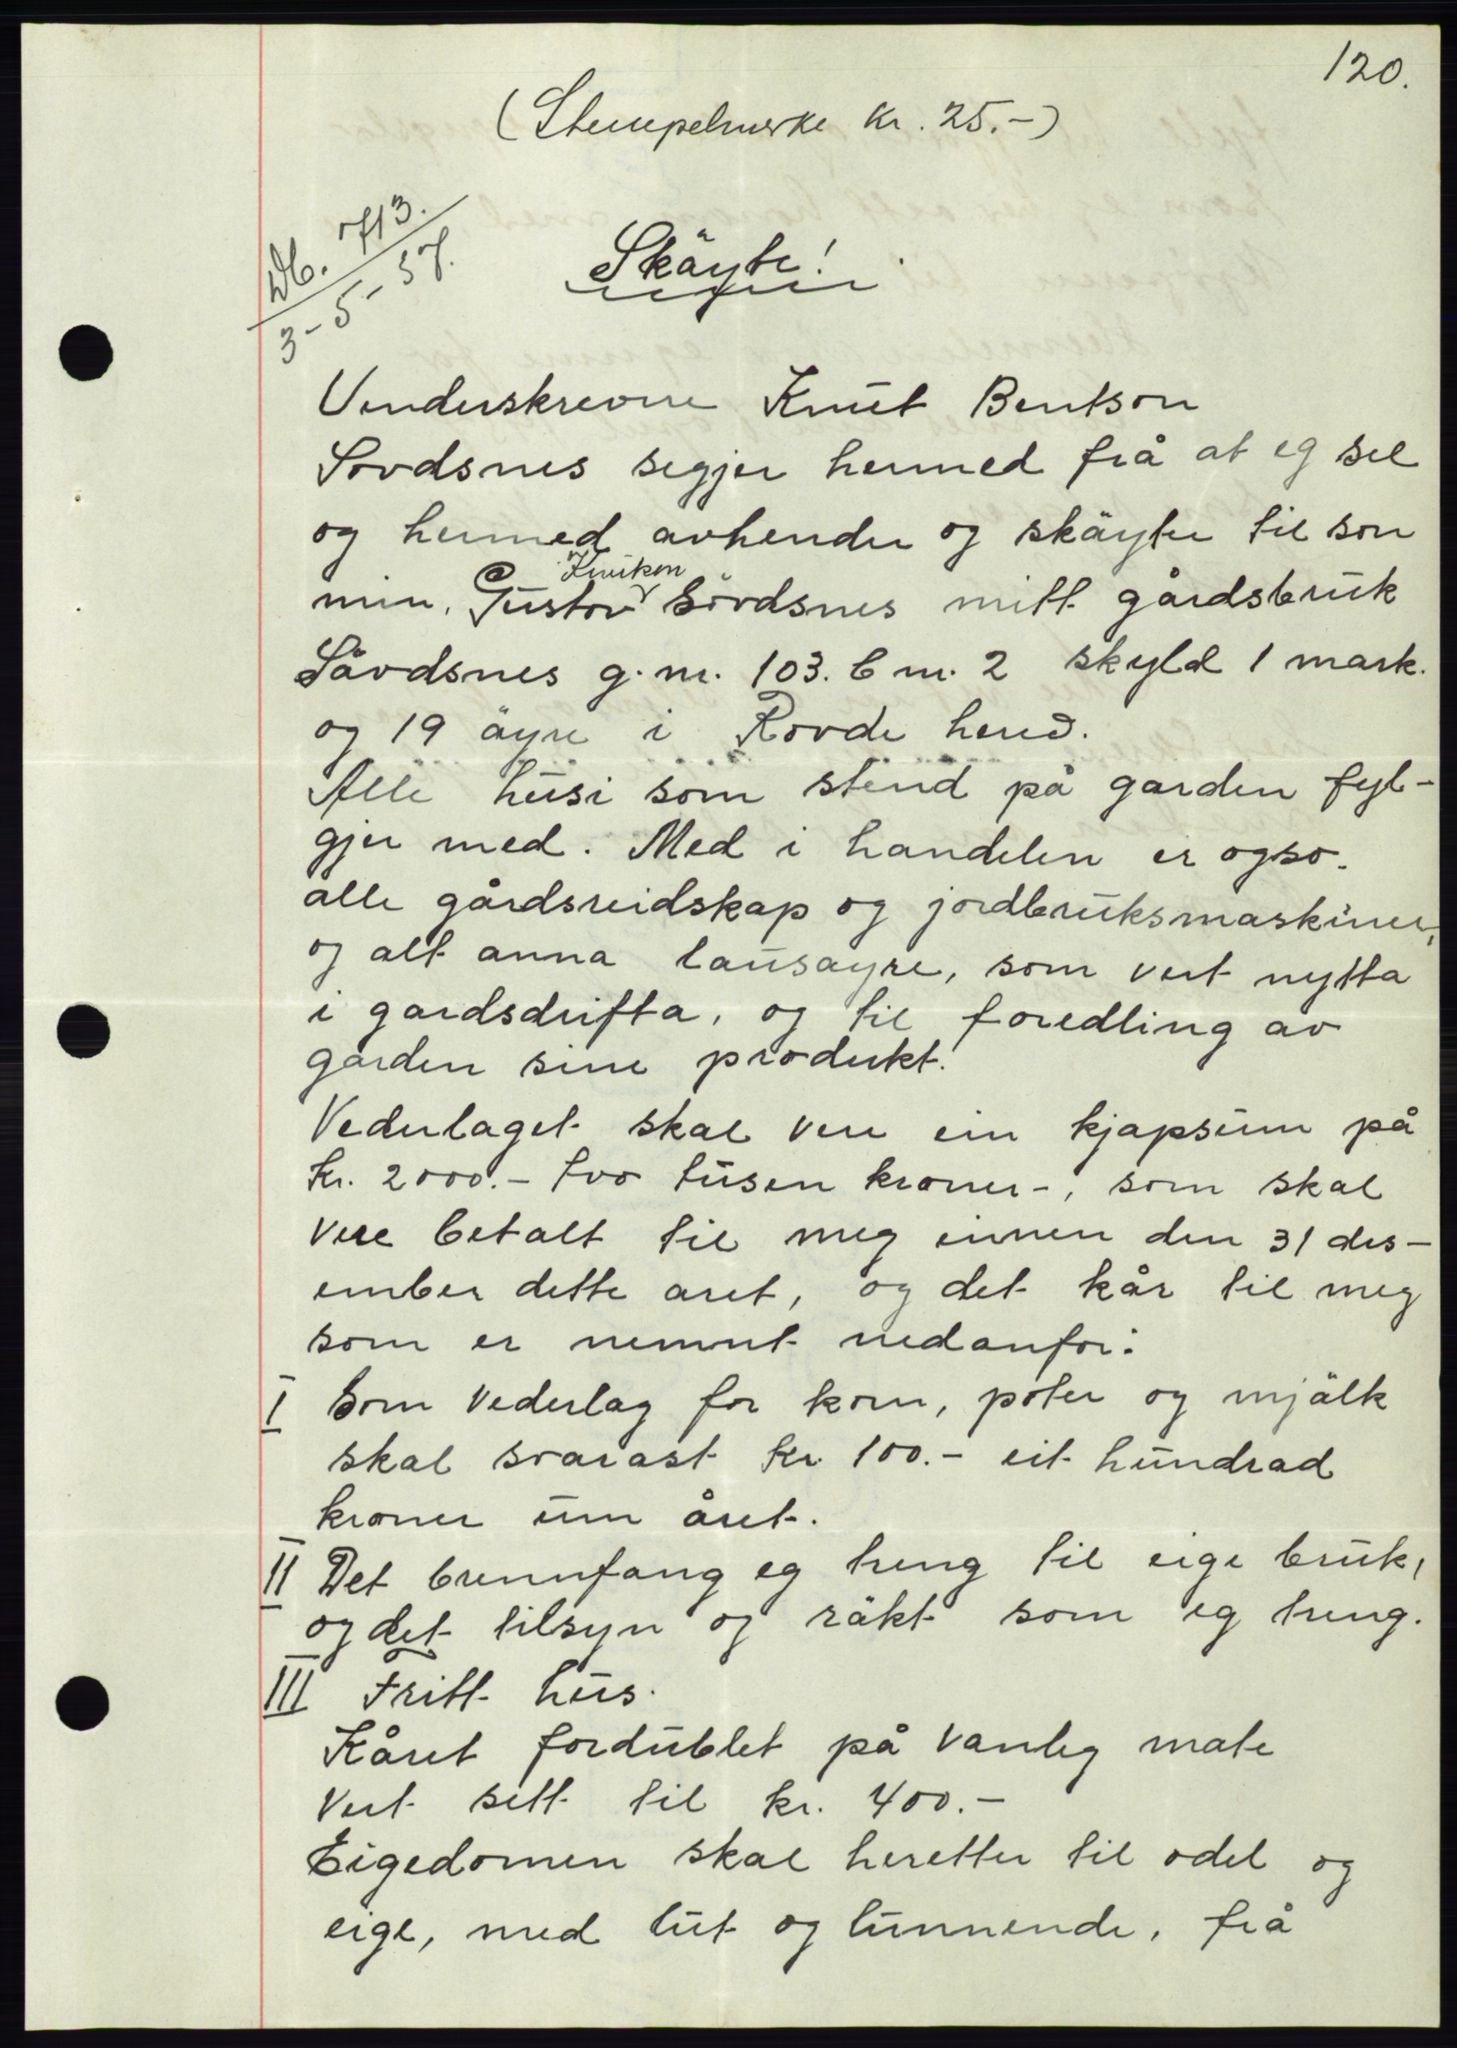 120.
(Stempelmerke kr. 25.-)
Db. 713.
3-5-37.
Skäyte!
Underskrevne Knut Bentson
Sovdsnes segjer hermed frå at eg sel
og hermed avhender og skäyter til son
min, Gustov Knutson Sövdsnes mitt gårdsbruk
Sövdsnes g.nr. 103. b nr. 2 skyld 1 mark.
og 19 äyre i Rovde hered.
Alle husi som stend på garden fyl-
gjer med. Med i handelen er ogso.
alle gårdsreidskap og jordbruksmaskiner,
og alt anna lausäyre, som vert nytta
i gardsdrifta, og til foredling av
garden sine produkt.
Vederlaget skal vere ein kjøpsum på
kr. 2000.- tvo tusen kroner-, som skal
vere betalt til meg innen den 31 des-
ember dette aret, og det kår til meg
som er nemnt nedanfor:
I Som vederlag for korn, poter og mjälk
skal svarast kr. 100.- eit hundrad
kroner um året.
II Det brennfang eg treng til eige bruk,
og det tilsyn og räkt som eg treng.
III Fritt hus.
Kåret fordublet på vanleg mate
vert sett til kr. 400.-
Eigedomen skal heretter til odel og
eige, med lut og lunnende, frå